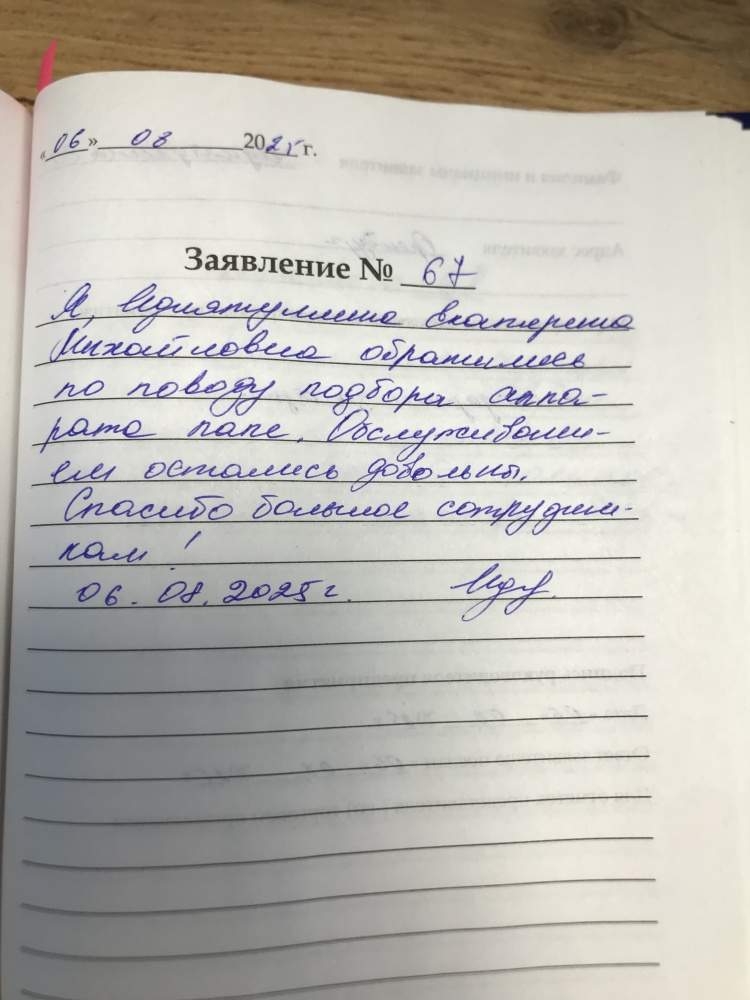 «06» 08 2025 г.
Заявление № 67
Я, Идиятуллина Екатерина
Михайловна обратились
по поводу подбора аппа-
рата папе. Обслуживани-
ем остались довольны.
Спасибо большое сотрудни-
кам!
06.08.2025 г. Иду